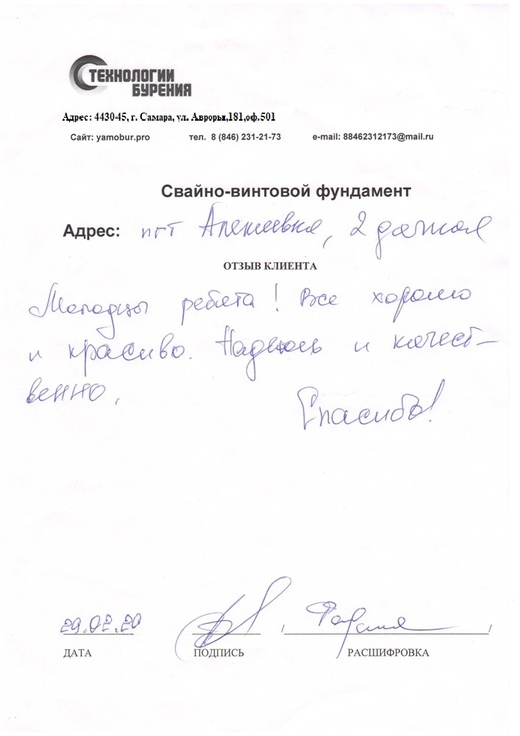 ТЕХНОЛОГИИ
БУРЕНИЯ
Адрес: 4430-45, г. Самара, ул. Авроры,181,оф.501
Сайт: yamobur.pro тел. 8 (846) 231-21-73 e-mail: 88462312173@mail.ru
Свайно-винтовой фундамент
Адрес: пгт Алексеевка, 2 дачная
ОТЗЫВ КЛИЕНТА
Молодцы ребята! Все хорошо
и красиво. Надеюсь и качест-
венно.
Спасибо!
29.02.20
ДАТА ПОДПИСЬ РАСШИФРОВКА